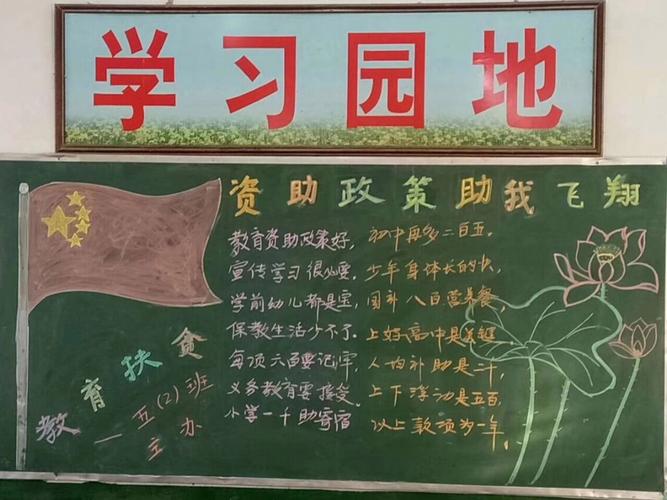 学习园地
资助政策助我飞翔
教育资助政策好,
宣传学习很必要。
学前幼儿都是宝,
保教生活少不了。
每项六百要记牢,
义务教育要接受。
小学一千助寄宿
初中再多二百五。
少年身体长的快,
国补八百营养餐,
上好高中是关键。
人均补助是二千,
上下浮动是五百,
以上款项为一年。
教育扶贫
一五(2)班
主办